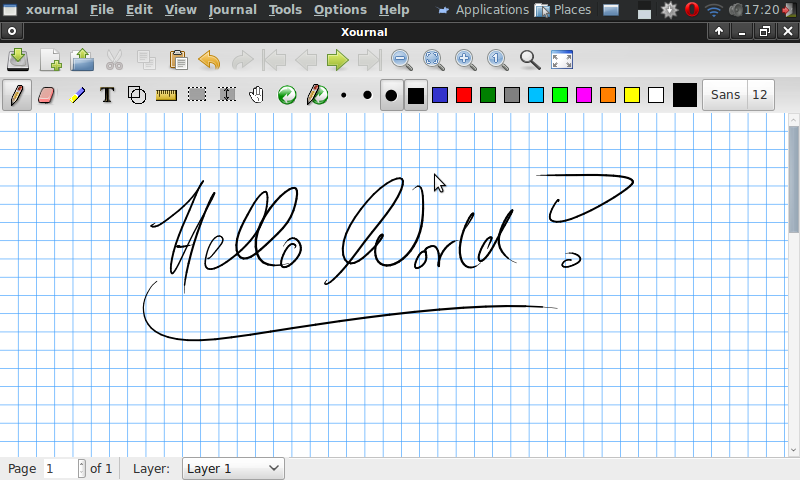 xournal File Edit View Journal Tools Options Help Applications Places 17:20
Xournal
T Sans 12
Hello World?
Page 1 of 1 Layer: Layer 1